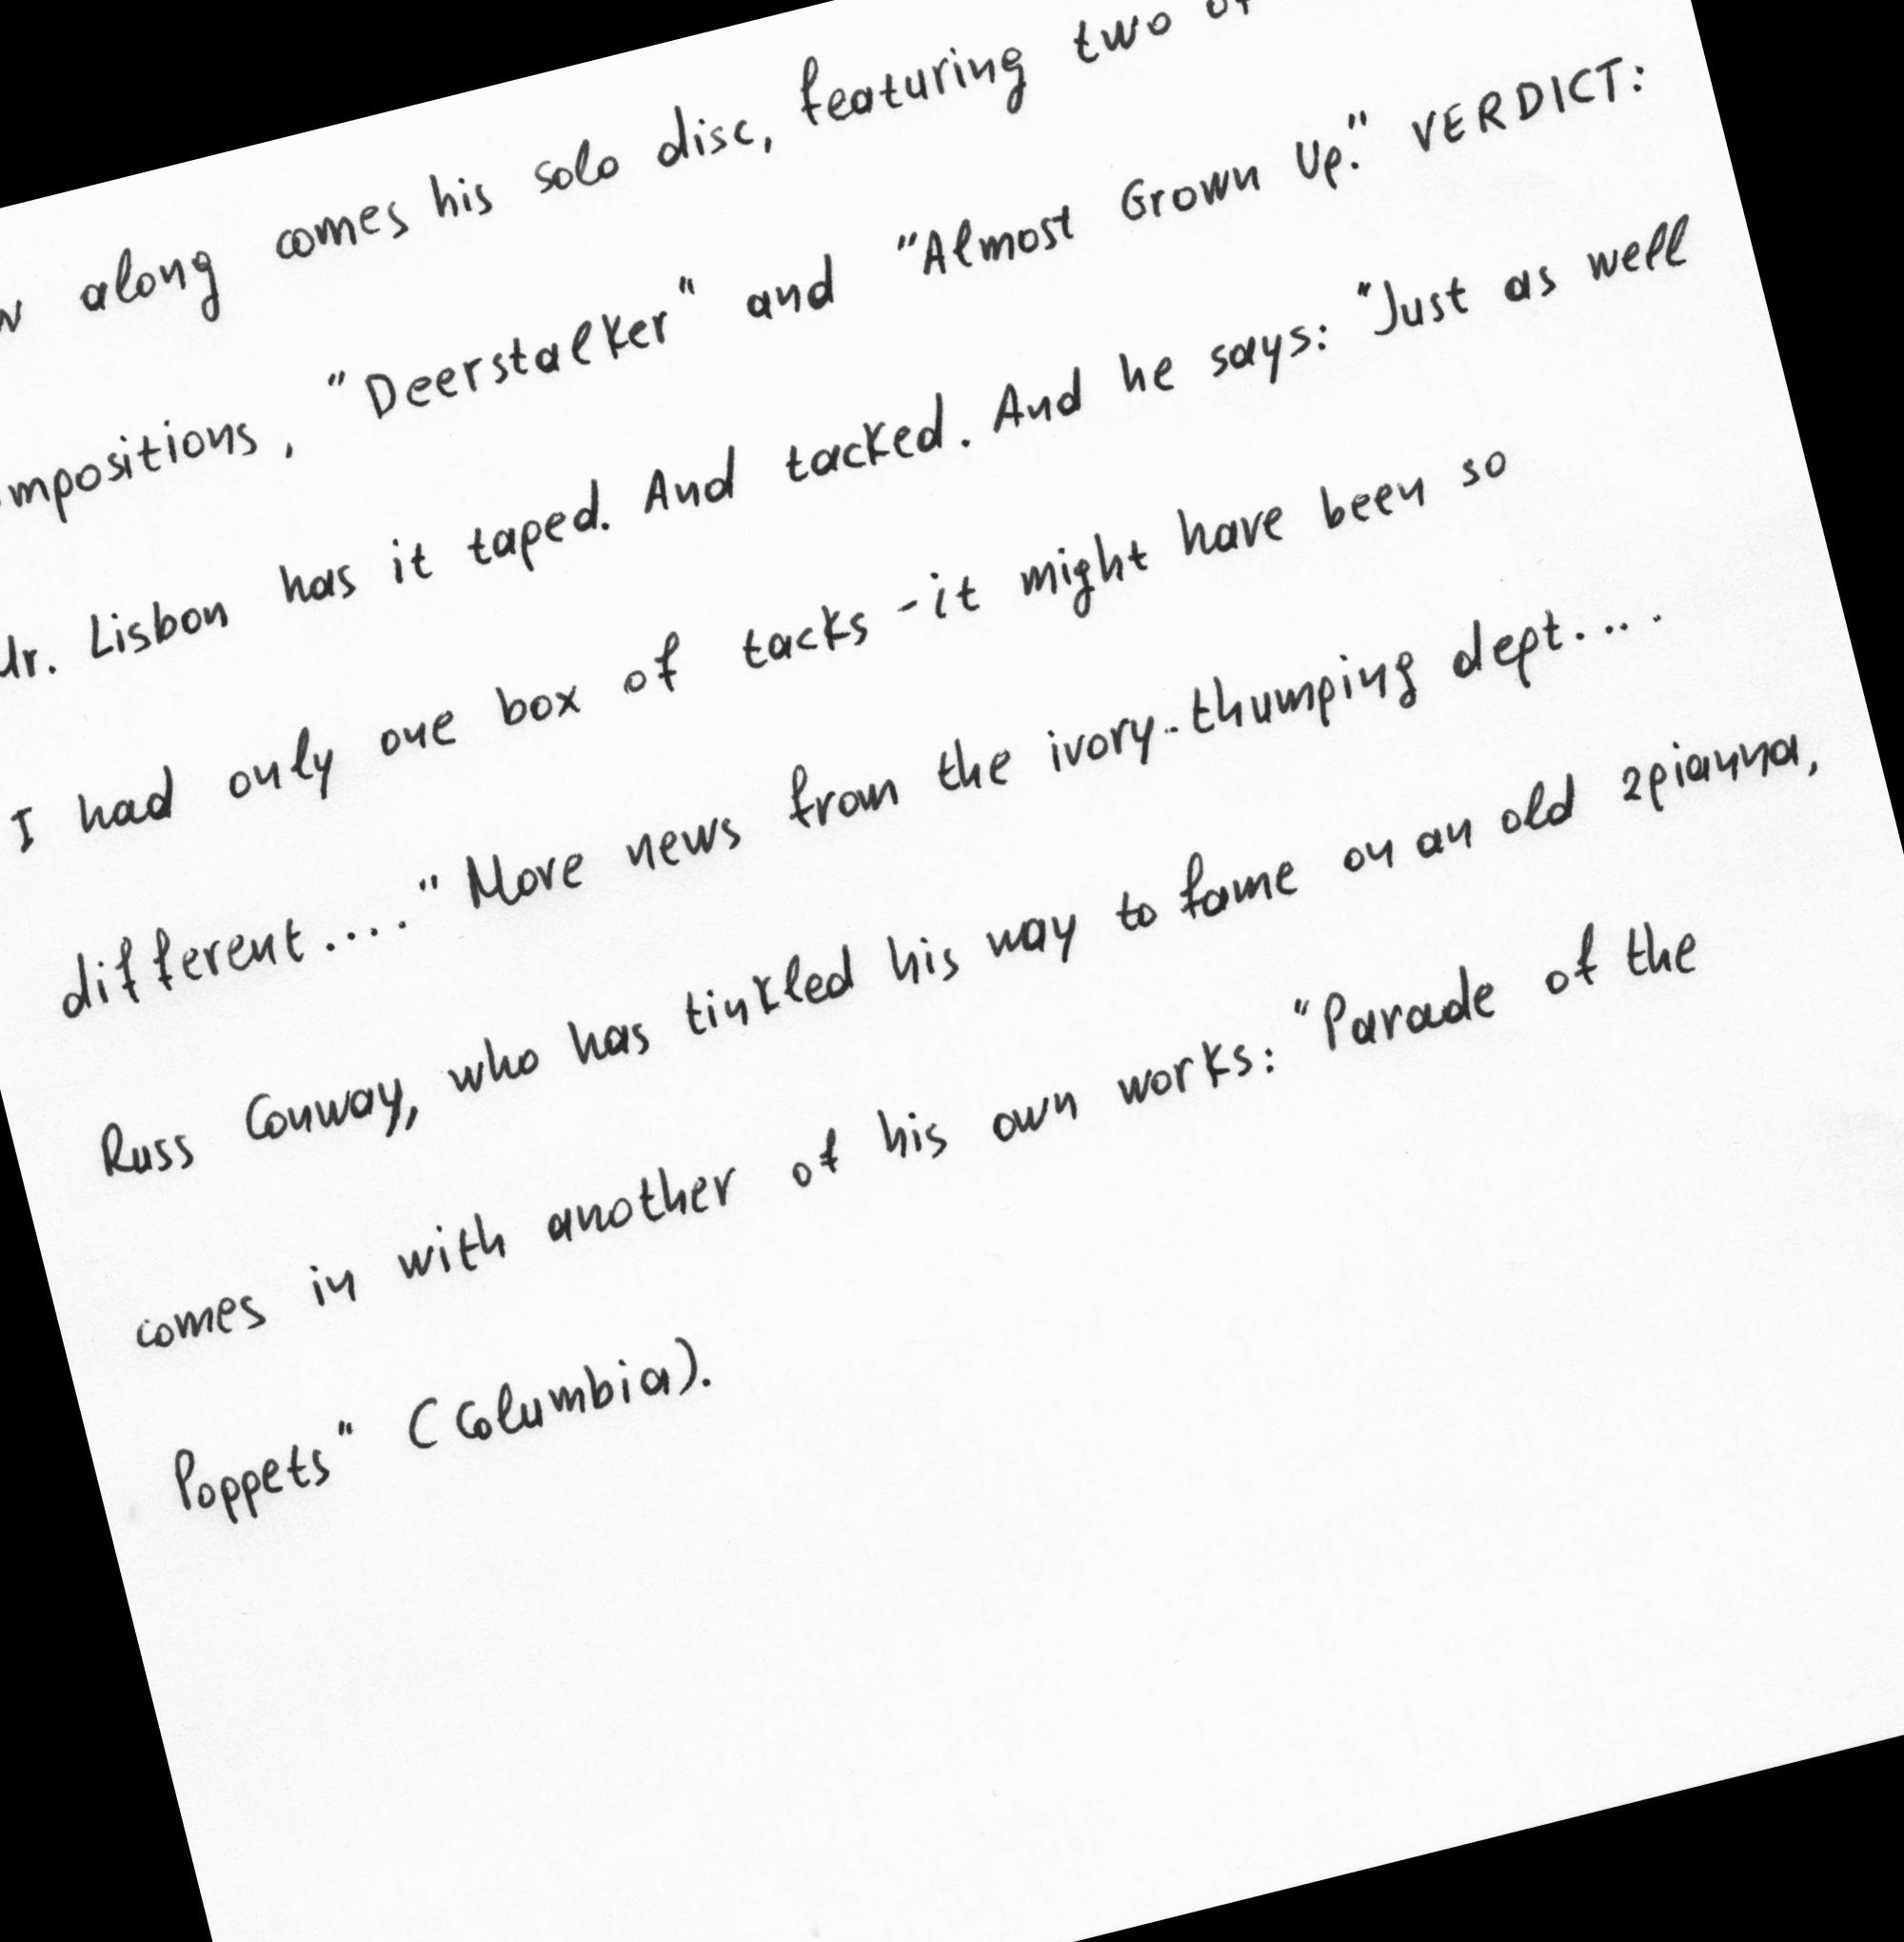 along comes his solo disc, featuring two
"Deerstalker" and "Almost Grown Up." VERDICT:
Lisbon has it taped. And tacked. And he says: "Just as well
I had only one box of tacks - it might have been so
different...." More news from the ivory-thumping dept....
Russ Conway, who has tinkled his way to fame on an old 2pianna,
comes in with another of his own works: "Parade of the
Poppets" (Columbia).